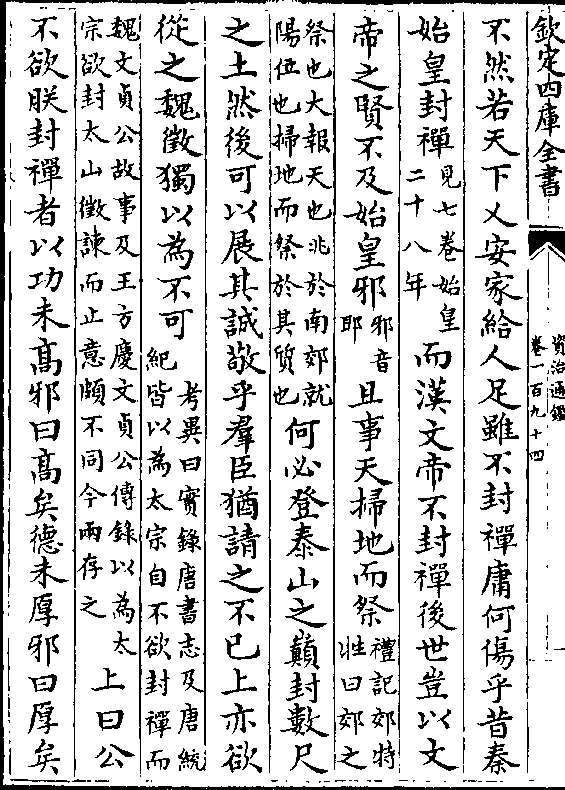 欽定四庫全書
資治通鑑
卷一百九十四
一
不然若天下乂安家給人足雖不封禪庸何傷乎昔秦
始皇封禪見七卷始皇二十八年而漢文帝不封禪後世豈以文
帝之賢不及始皇邪邪音耶且事天掃地而祭禮記郊特牲曰郊之
祭也大報天也兆於南郊就陽位也掃地而祭於其質也何必登泰山之巔封數尺
之土然後可以展其誠敬乎羣臣猶請之不已上亦欲
從之魏徵獨以為不可考異曰實錄唐書志及唐統紀皆以為太宗自不欲封禪而
魏文貞公故事及王方慶文貞公傳錄以為太宗欲封太山徵諫而止意頗不同今兩存之上曰公
不欲朕封禪者以功未髙邪曰髙矣德未厚邪曰厚矣